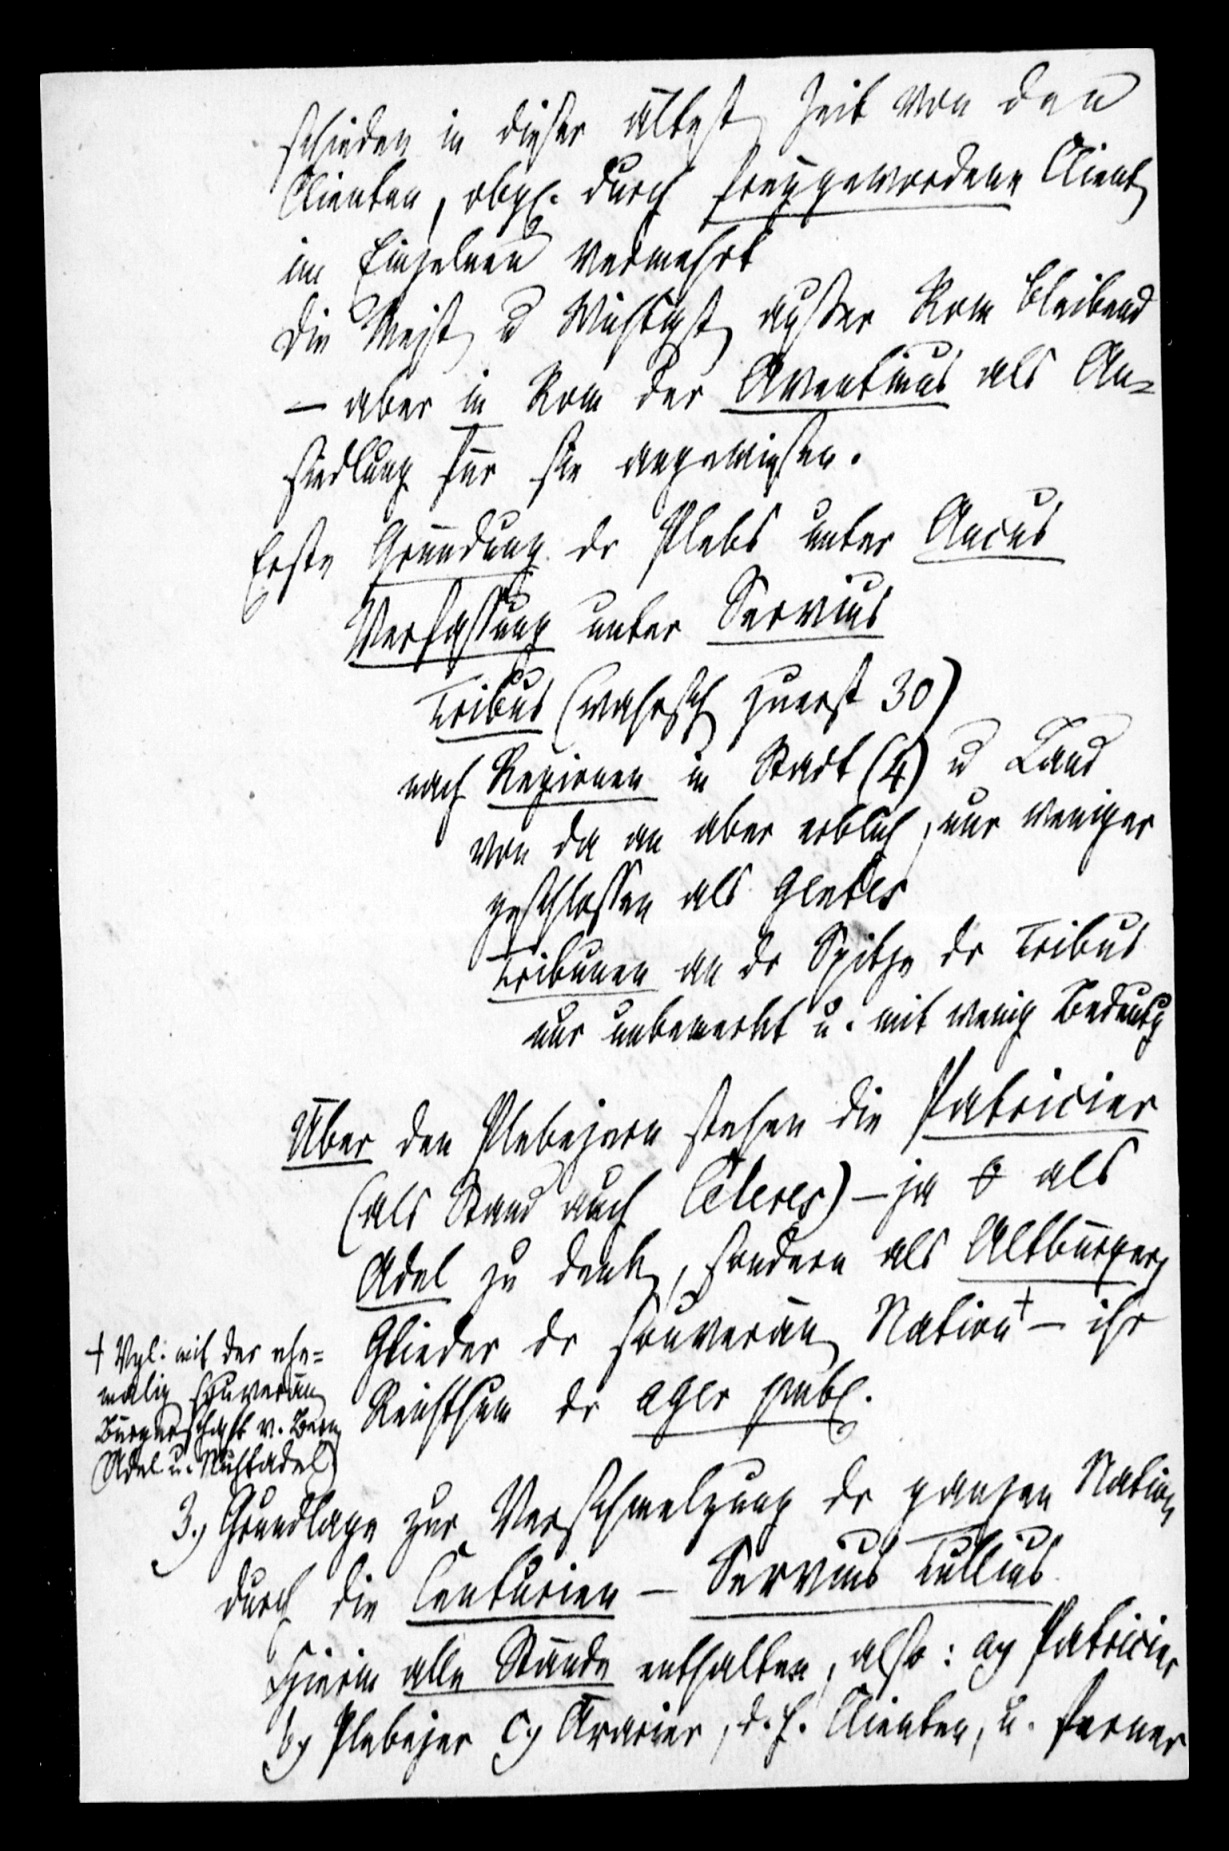 schieden in dieser ältest Zeit von den
Clienten, obgl. durch freygewordene Client
im Einzelnen vermehrt
Die Meist u Wichtigst ausser Rom bleibend
— aber in Rom der Aventinus als An=
siedlung für sie angewiesen.
Erste Gründung dr Plebs unter Ancus
Verfassung unter Servius
Tribus (wahrsch zuerst 30)
nach Regionen in Stadt (4) u Land
von da an aber erblich, nur weniger
geschlossen als Gentes
Tribunen an dr Spitze dr Tribus
nur unbemerkt u. mit wenig Bedeutg
Über den Plebejern stehen die Patricier
(als Stand auch Celeres) — ja als
Adel zu denk, sondern als Altbürger,
Glieder dr souverän Nation † — ihr
Reichthum dr ager publ.
† Vgl. mit der ehe=
malig souverän
Bürgerschaft v. Bern
(Adel u. Nichtadel)
3.) Grundlage zur Verschmelzung dr ganzen Nation
durch die Centurien — Servius Tullius
Hierin alle Stände enthalten, also: a) Patricier
b) Plebejer c) Ärarier, d. h. Clienten, u. ferner